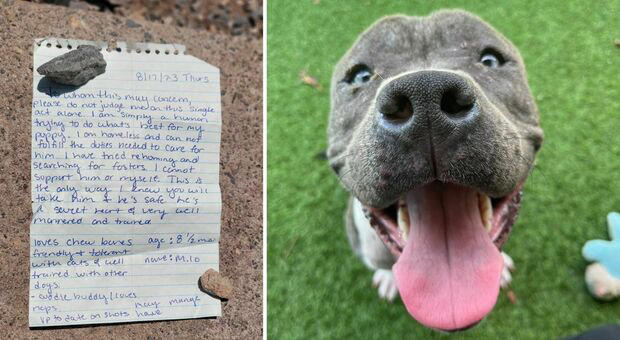 8/17/23 Thurs
To whom this may concern,
please do not judge me on this single
act alone. I am simply a human
trying to do what's best for my
puppy. I am homeless and can not
fulfill the duties needed to care for
him. I have tried rehoming and
searching for fosters. I cannot
support him or myself. This is
the only way I knew you will
take him & he's safe. he's
a sweet heart & very well
mannered and trained
loves chew bones age: 8 1/2 mo
friendly & tolerant
with cats & well name: Milo
trained with other
dogs.
- cuddle buddy/loves
naps. may mange
up to date on shots have